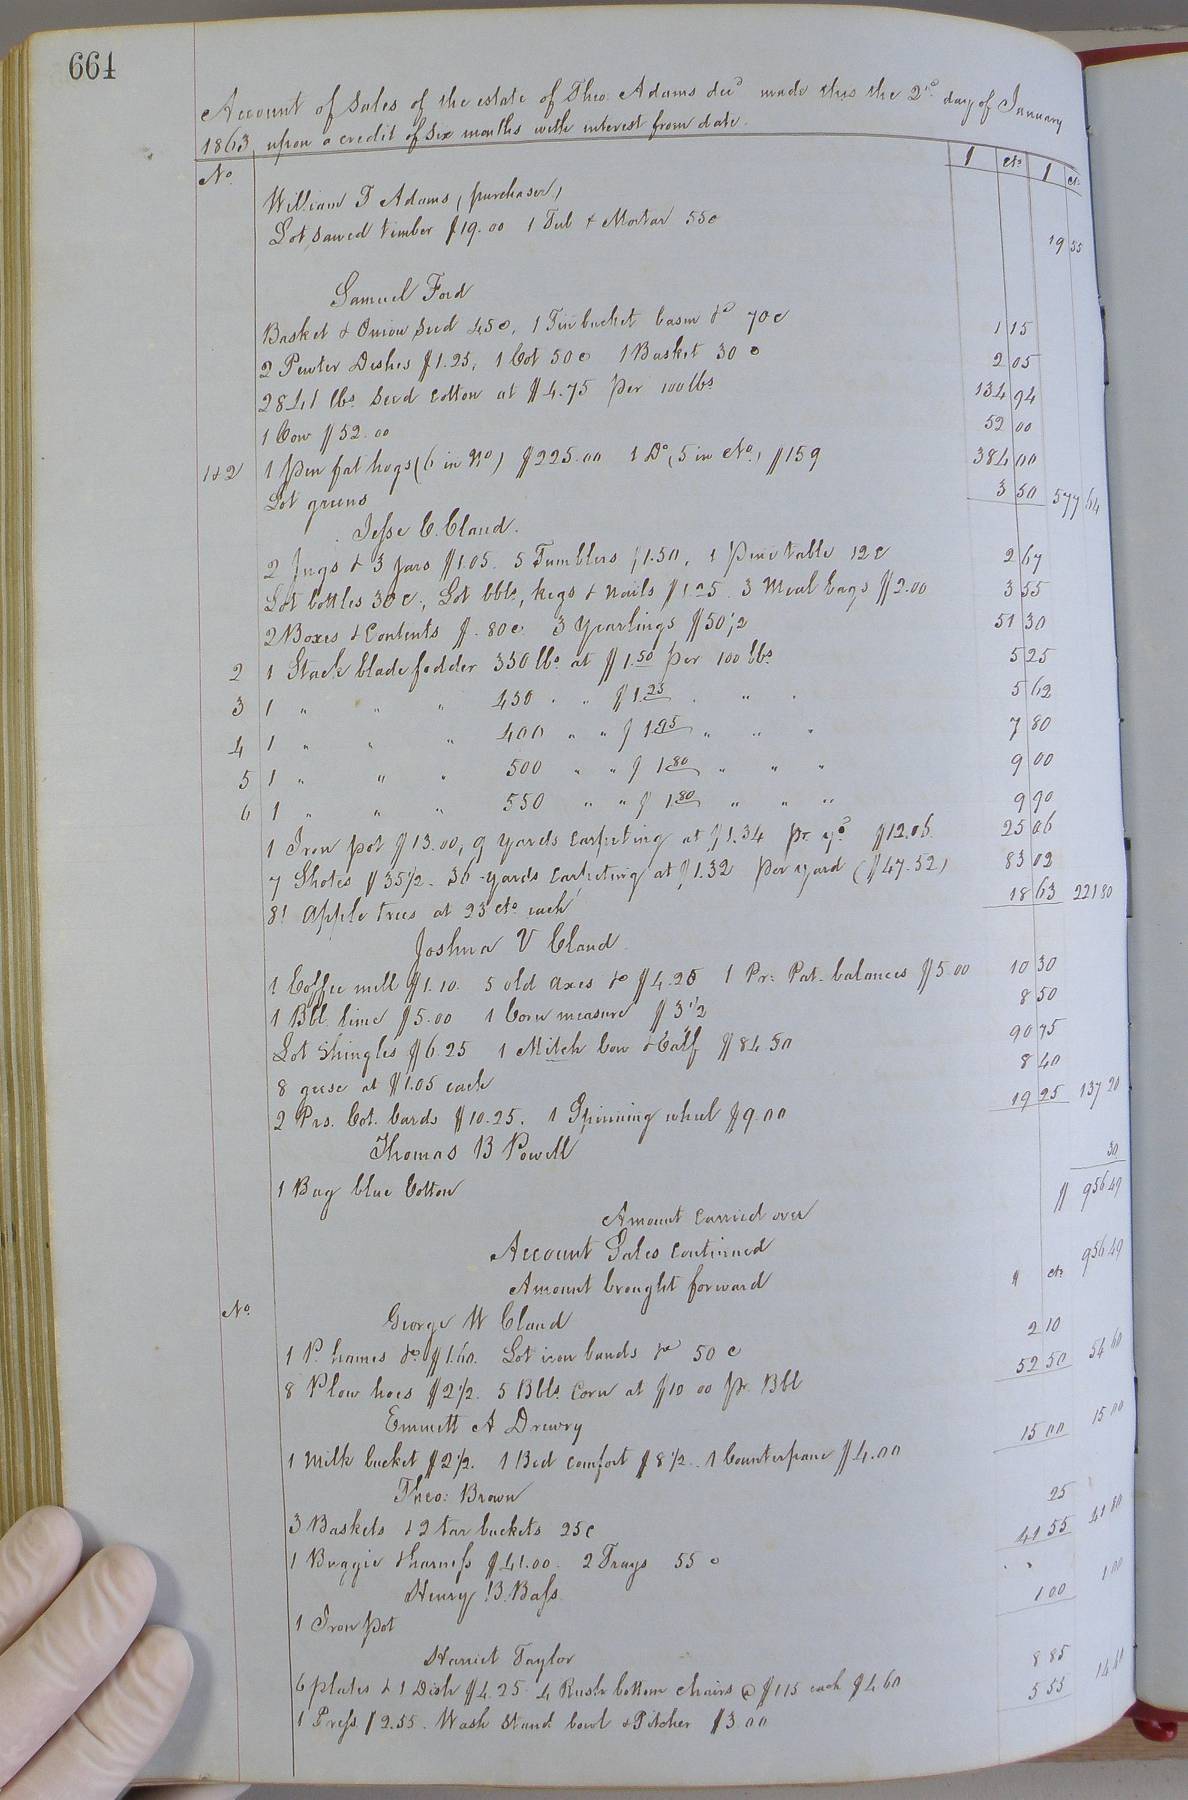 664
Account of Sales of the estate of Theo: Adams decd made this the 2nd day of January
1863, upon a credit of Six months with interest from date.
No. $ cts $ cts
William T Adams, (purchaser)
Lot sawed timber $19.00 1 Tub & Mortar 55c 19 55
Samuel Ford
Basket & Onion Seed 45c, 1 Tin bucket basin &c 70c 1 15
2 Pewter Dishes $1.25, 1 Cot 50c 1 Basket 30c 2 05
2841 lbs Seed cotton at $4.75 per 100 lbs 134 94
1 Cow $52.00 52 00
1&2 1 Pen fat hogs (6 in No) $225.00 1 Do (5 in No.) $159 384 00
Lot greens 3 50 577 64
Jesse C. Claud.
2 Jugs & 3 Jars $1.05. 5 Tumblers $1.50, 1 Pine table 12c 2 67
Lot bottles 30c, Lot bbls, kegs & nails $1.25 3 Meal bags $2.00 3 55
2 Boxes & Contents $.80c 3 Yearlings $50 1/2 51 30
2 1 Stack blade fodder 350 lbs at $1.50 per 100 lbs 5 25
3 1 " " " 450 " " $1.25 " " " 5 62
4 1 " " " 400 " " $1.95 " " " 7 80
5 1 " " " 500 " " $1.80 " " " 9 00
6 1 " " " 550 " " $1.80 " " " 9 90
1 Iron pot $13.00, 9 yards carpeting at $1.34 pr yd $12.06 25 06
7 Shotes $35 1/2. 36 yards carpeting at $1.32 per yard ($47.52) 83 02
81 Apple trees at 23 cts each 18 63 221 80
Joshua V Claud
1 Coffee mill $1.10. 5 old axes &c $4.20 1 Pr: Pat. balances $5.00 10 30
1 Bbl. lime $5.00 1 Corn measure $3 1/2 8 50
Lot Shingles $6.25 1 Milch Cow & Calf $84.50 90 75
8 geese at $1.05 each 8 40
2 Prs. Cot. Cards $10.25. 1 Spinning wheel $9.00 19 25 137 20
Thomas B Powell
1 Bag blue Cotton 30
Amount carried over $ 956 49
Account Sales continued
Amount brought forward 956 49
No. $ cts
George W Claud
1 P. hames &c $1.60. Lot iron bands &c 50c 2 10
8 Plow hoes $2 1/2. 5 Bbls Corn at $10 00 pr. Bbl 52 50 54 60
Emmett A Drewry
1 Milk bucket $2 1/2. 1 Bed comfort $8 1/2. 1 Counterpane $4.00 15 00 15 00
Theo: Brown
3 Baskets & 2 tar buckets 25c 25
1 Buggie & harness $41.00. 2 Trays 55c 41 55 41 80
Henry B. Bass
1 Iron pot 1 00 1 00
Harriet Taylor
6 plates & 1 Dish $4.25. 4 Rush bottom chairs @ $1.15 each $4.60 8 85
1 Press $2.55. Wash Stand bowl & Pitcher $3.00 5 55